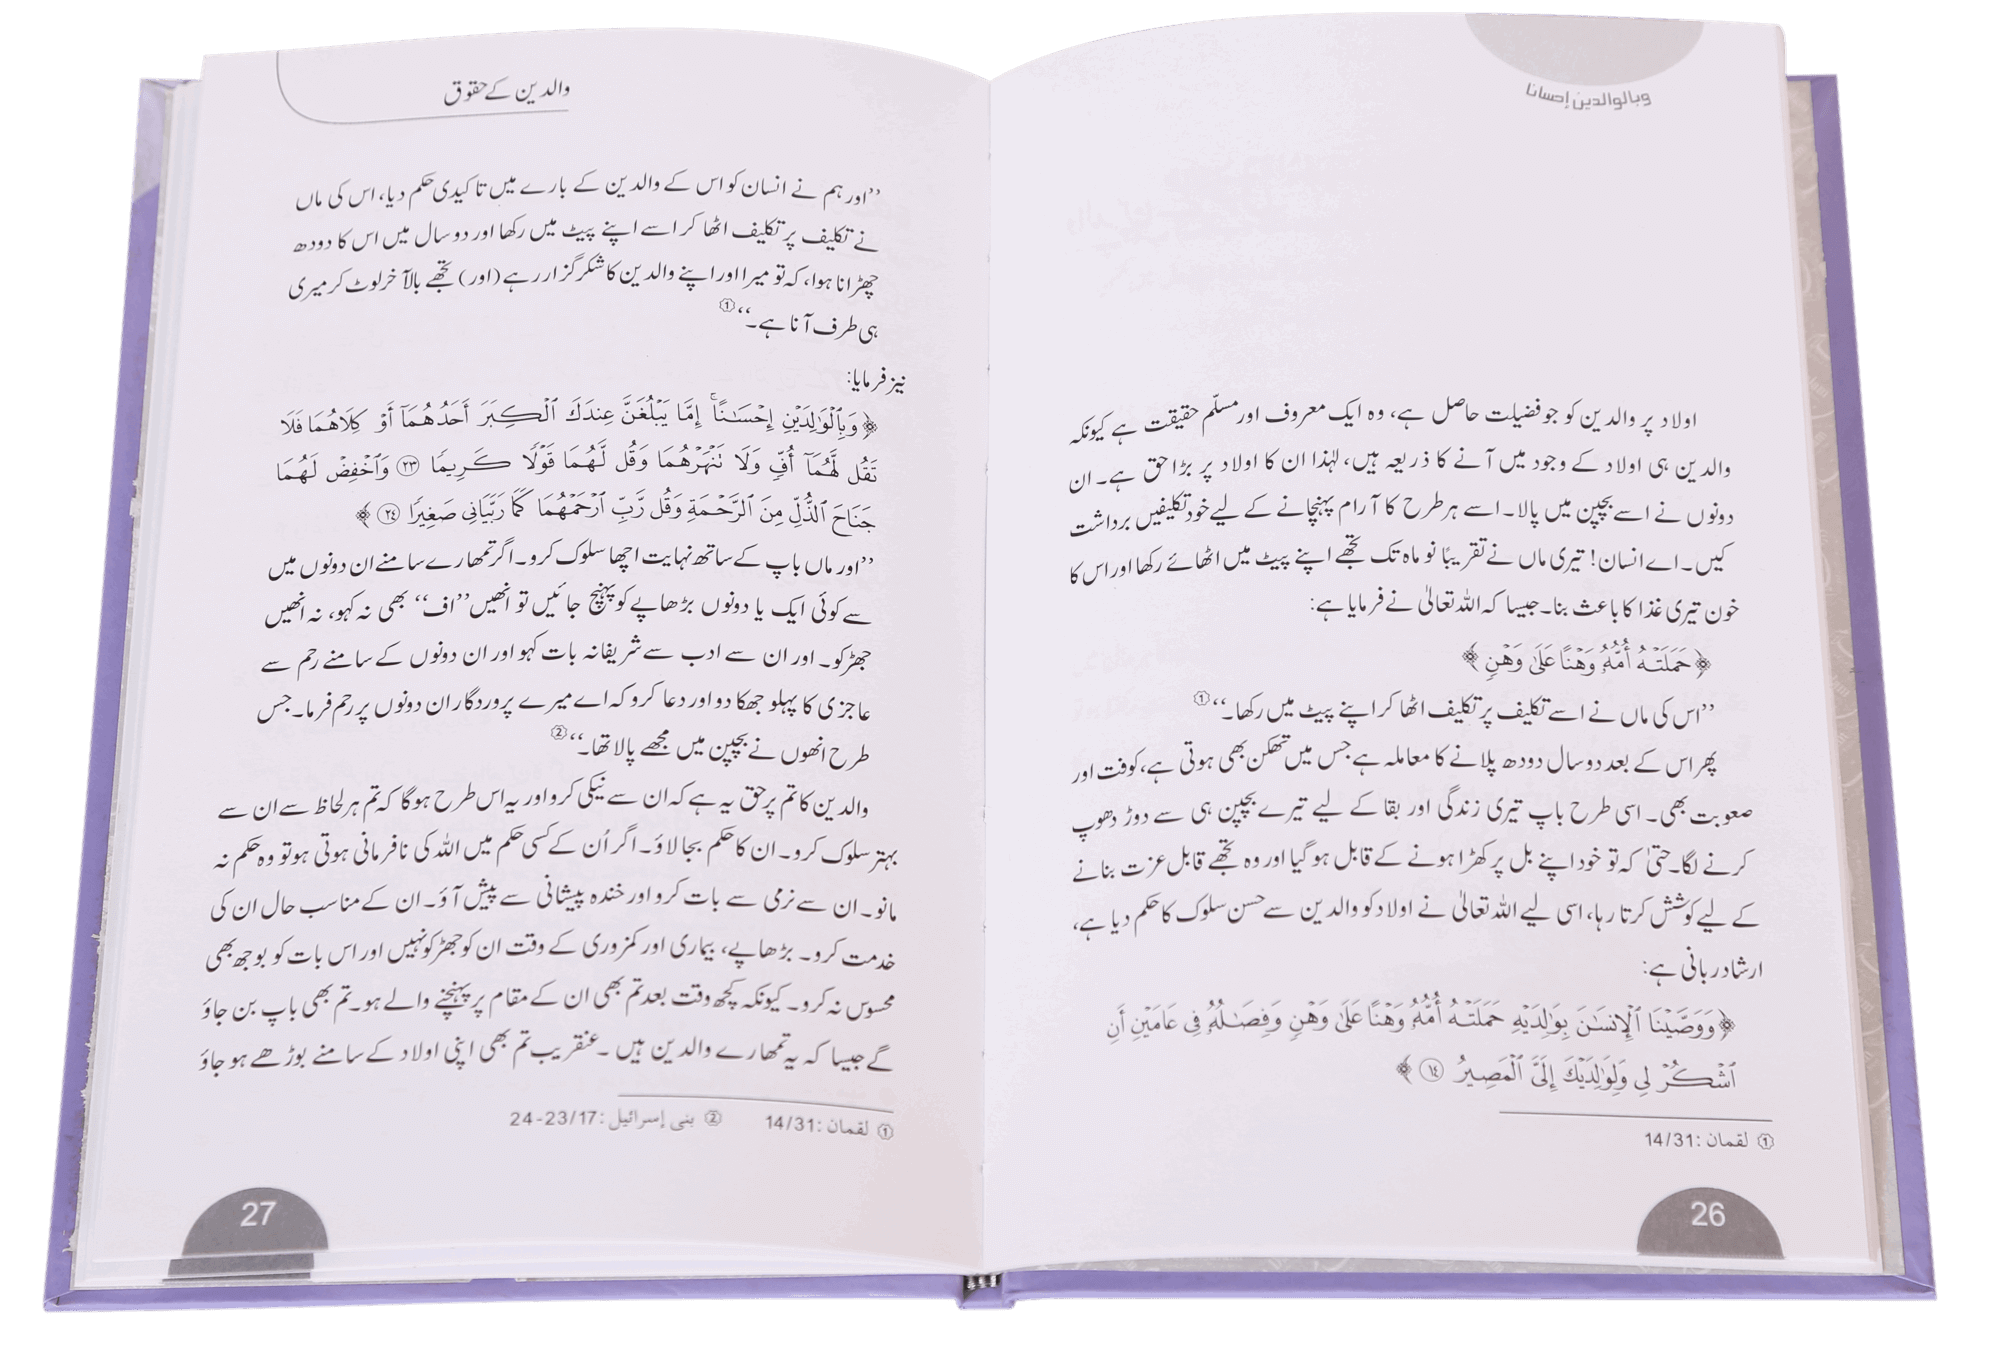 وبالوالدين إحسانا
اولاد پر والدین کو جو فضیلت حاصل ہے، وہ ایک معروف اور مسلّم حقیقت ہے کیونکہ
والدین ہی اولاد کے وجود میں آنے کا ذریعہ ہیں، لہٰذا ان کا اولاد پر بڑا حق ہے۔ ان
دونوں نے اسے بچپن میں پالا۔ اسے ہر طرح کا آرام پہنچانے کے لیے خود تکلیفیں برداشت
کیں۔ اے انسان! تیری ماں نے تقریبًا نو ماہ تک تجھے اپنے پیٹ میں اٹھائے رکھا اور اس کا
خون تیری غذا کا باعث بنا۔ جیسا کہ اللہ تعالیٰ نے فرمایا ہے:
﴿حَمَلَتْهُ أُمُّهُۥ وَهْنًا عَلَىٰ وَهْنٍ﴾
’’اس کی ماں نے اسے تکلیف پر تکلیف اٹھا کر اپنے پیٹ میں رکھا۔‘‘①
پھر اس کے بعد دو سال دودھ پلانے کا معاملہ ہے جس میں تھکن بھی ہوتی ہے، کوفت اور
صعوبت بھی۔ اسی طرح باپ تیری زندگی اور بقا کے لیے تیرے بچپن ہی سے دوڑ دھوپ
کرنے لگا۔ حتیٰ کہ تو خود اپنے بل پر کھڑا ہونے کے قابل ہو گیا اور وہ تجھے قابل عزت بنانے
کے لیے کوشش کرتا رہا، اسی لیے اللہ تعالیٰ نے اولاد کو والدین سے حسن سلوک کا حکم دیا ہے،
ارشاد ربانی ہے:
﴿وَوَصَّيْنَا ٱلْإِنسَٰنَ بِوَٰلِدَيْهِ حَمَلَتْهُ أُمُّهُۥ وَهْنًا عَلَىٰ وَهْنٍ وَفِصَٰلُهُۥ فِى عَامَيْنِ أَنِ
ٱشْكُرْ لِى وَلِوَٰلِدَيْكَ إِلَىَّ ٱلْمَصِيرُ ١٤﴾
① لقمان: 14/31
26
والدین کے حقوق
’’اور ہم نے انسان کو اس کے والدین کے بارے میں تاکیدی حکم دیا، اس کی ماں
نے تکلیف پر تکلیف اٹھا کر اسے اپنے پیٹ میں رکھا اور دو سال میں اس کا دودھ
چھڑانا ہوا، کہ تو میرا اور اپنے والدین کا شکر گزار رہے (اور) تجھے بالآخر لوٹ کر میری
ہی طرف آنا ہے۔‘‘①
نیز فرمایا:
﴿وَبِٱلْوَٰلِدَيْنِ إِحْسَٰنًا ۚ إِمَّا يَبْلُغَنَّ عِندَكَ ٱلْكِبَرَ أَحَدُهُمَآ أَوْ كِلَاهُمَا فَلَا
تَقُل لَّهُمَآ أُفٍّ وَلَا تَنْهَرْهُمَا وَقُل لَّهُمَا قَوْلًا كَرِيمًا ٢٣ وَٱخْفِضْ لَهُمَا
جَنَاحَ ٱلذُّلِّ مِنَ ٱلرَّحْمَةِ وَقُل رَّبِّ ٱرْحَمْهُمَا كَمَا رَبَّيَانِى صَغِيرًا ٢٤﴾
’’اور ماں باپ کے ساتھ نہایت اچھا سلوک کرو۔ اگر تمھارے سامنے ان دونوں میں
سے کوئی ایک یا دونوں بڑھاپے کو پہنچ جائیں تو انھیں ’’اف‘‘ بھی نہ کہو، نہ انھیں
جھڑکو۔ اور ان سے ادب سے شریفانہ بات کہو اور ان دونوں کے سامنے رحم سے
عاجزی کا پہلو جھکا دو اور دعا کرو کہ اے میرے پروردگار ان دونوں پر رحم فرما۔ جس
طرح انھوں نے بچپن میں مجھے پالا تھا۔‘‘②
والدین کا تم پر حق یہ ہے کہ ان سے نیکی کرو اور یہ اس طرح ہوگا کہ تم ہر لحاظ سے ان سے
بہتر سلوک کرو۔ ان کا حکم بجا لاؤ۔ اگر اُن کے کسی حکم میں اللہ کی نافرمانی ہوتی ہو تو وہ حکم نہ
مانو۔ ان سے نرمی سے بات کرو اور خندہ پیشانی سے پیش آؤ۔ ان کے مناسب حال ان کی
خدمت کرو۔ بڑھاپے، بیماری اور کمزوری کے وقت ان کو جھڑکو نہیں اور اس بات کو بوجھ بھی
محسوس نہ کرو۔ کیونکہ کچھ وقت بعد تم بھی ان کے مقام پر پہنچنے والے ہو۔ تم بھی باپ بن جاؤ
گے جیسا کہ یہ تمھارے والدین ہیں۔ عنقریب تم بھی اپنی اولاد کے سامنے بوڑھے ہو جاؤ
① لقمان: 14/31 ② بنی إسرائیل: 24-23/17
27